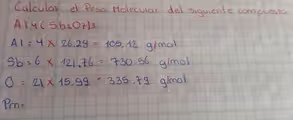 Calcular el Peso Molecular del siguiente compuesto
Al4(Sb2O7)3
Al = 4 x 26.29 = 105.12 g/mol
Sb = 6 x 121.76 = 730.56 g/mol
O = 21 x 15.99 = 335.79 g/mol
Pm=